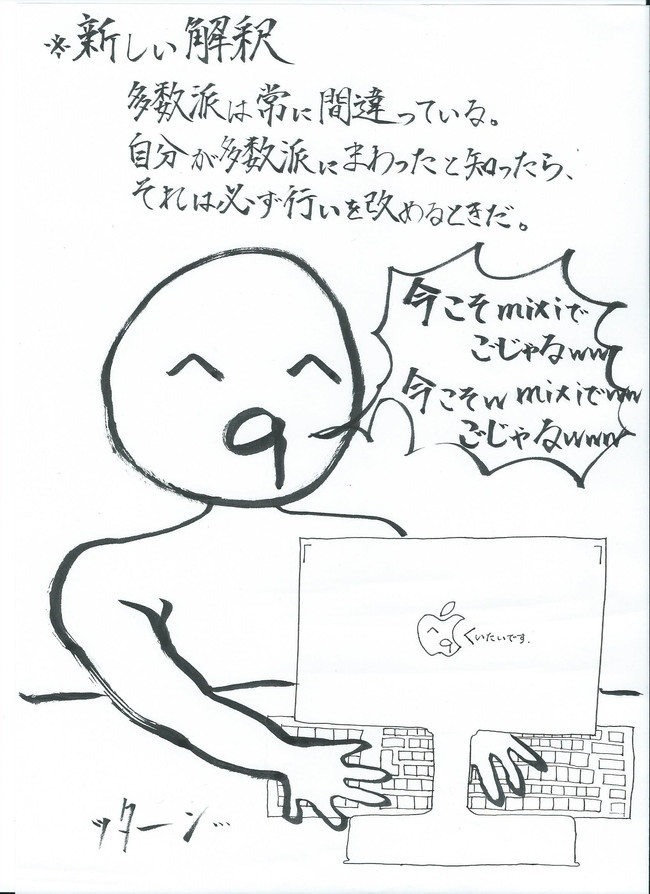 ※新しい解釈
多数派は常に間違っている。
自分が多数派にまわったと知ったら、
それは必ず行いを改めるときだ。
今こそmixiで
ごじゃるww
今こそw mixiでww
ごじゃるwww
くいたいです.
ッターン…